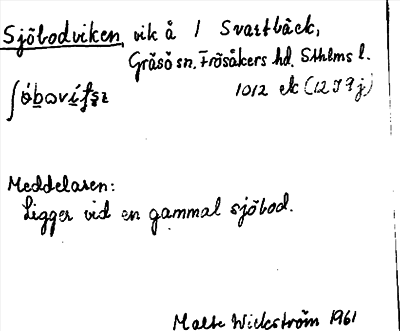 Sjöbodviken, vik å 1 Svartbäck,
Gräsö sn. Frösåkers hd. Sthlms l.
1012 ek (12 I 9 j)
Meddelaren:
Ligger vid en gammal sjöbod.
Malte Wickström 1961